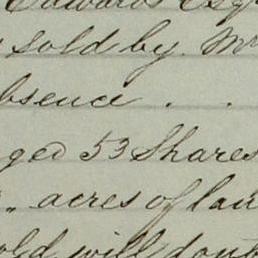 Edwards Esqr
sold by Mr
bsence . .
ged 53 Shares
" acres of lan
old will doub